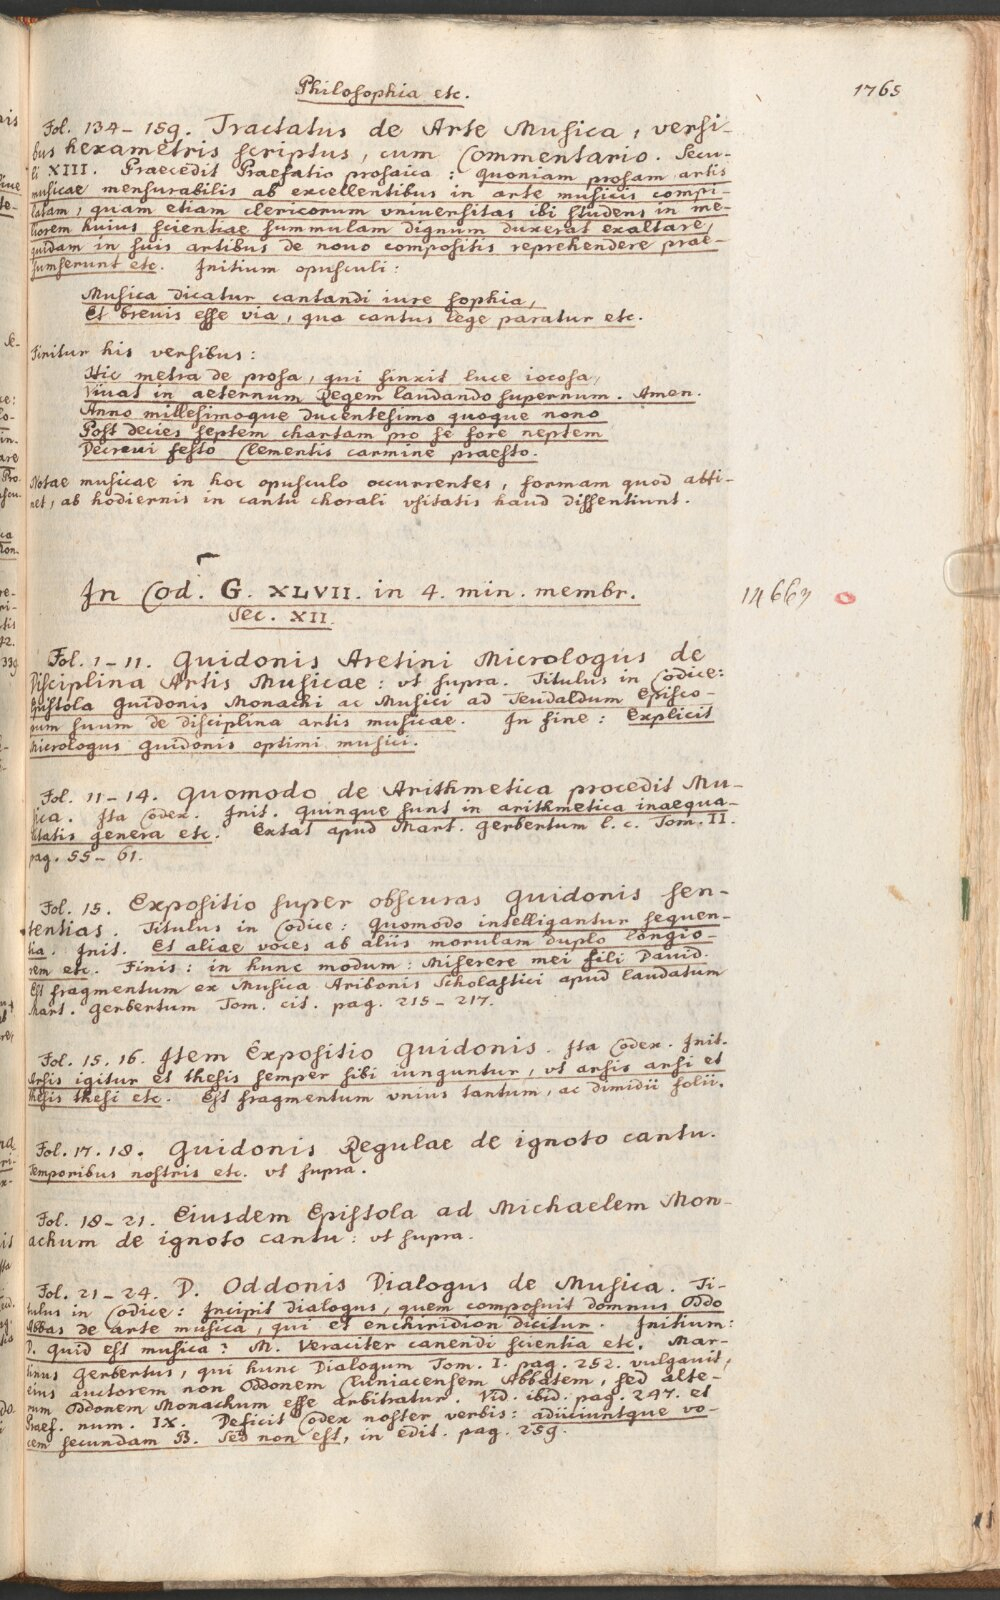 Philosophia etc.
1765
Fol. 134–159. Tractatus de Arte Musica, versi-
bus hexametris scriptus, cum Commentario. Secu-
li XIII. Praecedit Praefatio prosaica: quoniam prosam artis
musicae mensurabilis ab excellentibus in arte musicis compi-
latam, quam etiam clericorum vniversitas ibi studens in me-
liorem huius scientiae summulam dignum duxerat exaltare,
quidam in suis artibus de novo compositis reprehendere prae-
sumserunt etc. Initium opusculi:
Musica dicatur cantandi iure sophia,
Et brevis esse via, qua cantus lege paratur etc.
Finitur his versibus:
Hic metra de prosa, qui finxit luce iocosa,
Vivat in aeternum Regem laudando supernum. Amen.
Anno millesimoque ducentesimo quoque nono
Post decies septem chartam pro se fore neptem
Decrevi festo Clementis carmine praesto.
Notae musicae in hoc opusculo occurrentes, formam quod atti-
net, ab hodiernis in cantu chorali vsitatis haud dissentiunt.
In Cod. G. XLVII. in 4. min. membr.
Sec. XII.
14663
Fol. 1–11. Guidonis Aretini Micrologus de
Disciplina Artis Musicae: vt supra. Titulus in Codice:
Epistola Guidonis Monachi ac Musici ad Teudaldum Episco-
pum suum de disciplina artis musicae. In fine: Explicit
Micrologus Guidonis optimi musici.
Fol. 11–14. Quomodo de Arithmetica procedit Mu-
sica. Ita Codex. Init. Quinque sunt in arithmetica inaequa-
litatis genera etc. Extat apud Mart. Gerbertum l. c. Tom. II.
pag. 55–61.
Fol. 15. Expositio super obscuras Guidonis sen-
tentias. Titulus in Codice: Quomodo intelligantur sequen-
tia. Init. Et aliae voces ab aliis morulam duplo longio-
rem etc. Finis: in hunc modum: Miserere mei fili David.
Est fragmentum ex Musica Aribonis Scholastici apud laudatum
Mart. Gerbertum Tom. cit. pag. 215–217.
Fol. 15. 16. Item Expositio Guidonis. Ita Codex. Init.
Arsis igitur et thesis semper sibi iunguntur, vt arsis arsi et
thesis thesi etc. Est fragmentum vnius tantum, ac dimidii folii.
Fol. 17. 18. Guidonis Regulae de ignoto cantu.
Temporibus nostris etc. vt supra.
Fol. 18–21. Eiusdem Epistola ad Michaelem Mon-
achum de ignoto cantu: vt supra.
Fol. 21–24. D. Oddonis Dialogus de Musica. Ti-
tulus in Codice: Incipit dialogus, quem composuit domnus Oddo
Abbas de arte musica, qui et enchiridion dicitur. Initium:
D. quid est musica? M. Veraciter canendi scientia etc. Mar-
tinus Gerbertus, qui hunc Dialogum Tom. I. pag. 252. vulgavit,
eius auctorem non Oddonem Cluniacensem Abbatem, sed alte-
rum Oddonem Monachum esse arbitratur. Vid. ibid. pag. 247. et
Praef. num. IX. Deficit Codex noster verbis: adiiciuntque vo-
cem secundam B. Sed non est, in edit. pag. 259.